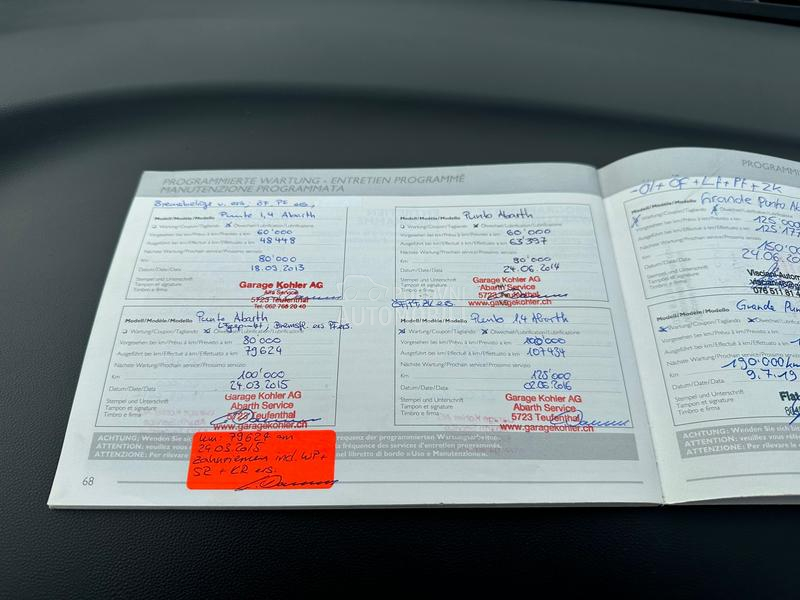 PROGRAMMIERTE WARTUNG - ENTRETIEN PROGRAMMÉ
MANUTENZIONE PROGRAMMATA
Bremsbeläge v. ers, ÖF, PF ers,
Modell/Modèle/Modello Punto 1,4 Abarth
Wartung/Coupon/Tagliando Ölwechsel/Lubrification/Lubrificazione
Vorgesehen bei km/Prévu à km/Previsto a km 60'000
Ausgeführt bei km/Effectué à km/Effettuato a km 48448
Nächste Wartung/Prochain service/Prossimo servizio
Km 80'000
Datum/Date/Data 18.09.2013
Stempel und Unterschrift
Tampon et signature
Timbro e firma
Garage Kohler AG
5723 Teufenthal
Tel. 062 768 20 40
Modell/Modèle/Modello Punto Abarth
Wartung/Coupon/Tagliando Ölwechsel/Lubrification/Lubrificazione
Vorgesehen bei km/Prévu à km/Previsto a km 60'000
Ausgeführt bei km/Effectué à km/Effettuato a km 63397
Nächste Wartung/Prochain service/Prossimo servizio
Km 80'000
Datum/Date/Data 24.06.2014
Stempel und Unterschrift
Tampon et signature
Timbro e firma
Garage Kohler AG
Abarth Service
5723 Teufenthal
www.garagekohler.ch
Modell/Modèle/Modello Punto Abarth
Wartung/Coupon/Tagliando Ölwechsel/Lubrification/Lubrificazione
Vorgesehen bei km/Prévu à km/Previsto a km 80'000
Ausgeführt bei km/Effectué à km/Effettuato a km 79624
Nächste Wartung/Prochain service/Prossimo servizio
Km 100'000
Datum/Date/Data 24.03.2015
Stempel und Unterschrift
Tampon et signature
Timbro e firma
Garage Kohler AG
Abarth Service
5723 Teufenthal
www.garagekohler.ch
ÖF, PF, BV ers
Modell/Modèle/Modello Punto 1,4 Abarth
Wartung/Coupon/Tagliando Ölwechsel/Lubrification/Lubrificazione
Vorgesehen bei km/Prévu à km/Previsto a km 100'000
Ausgeführt bei km/Effectué à km/Effettuato a km 107434
Nächste Wartung/Prochain service/Prossimo servizio
Km 125'000
Datum/Date/Data 02.06.2016
Stempel und Unterschrift
Tampon et signature
Timbro e firma
Garage Kohler AG
Abarth Service
5723 Teufenthal
www.garagekohler.ch
ACHTUNG: Wenden Sie sich
ATTENTION: veuillez vous
ATTENZIONE: Per rilevare
frequenz der programmierten Wartungsarbeiten.
la fréquence des services d'entretien programmés.
nel libretto di bordo «Uso e Manutenzione».
km: 79624 am
24.03.2015
Zahnriemen incl. WP +
SR + KR ers.
68
PROGRAMMI
-Öl + ÖF + LF + PF + ZK
Modell/Modèle/Modello Grande Punto Ab
Wartung/Coupon/Tagliando Ölwechsel/Lubrification
Vorgesehen bei km/Prévu à km/Previsto a km 125'000
Ausgeführt bei km/Effectué à km/Effettuato a km
Nächste Wartung/Prochain service/Prossimo servizio
Km 150'0
Datum/Date/Data 24.06.
Stempel und Unterschrift
Tampon et signature
Timbro e firma
Modell/Modèle/Modello Grande Pun
Wartung/Coupon/Tagliando
Vorgesehen bei km/Prévu à km/Previsto a
Ausgeführt bei km/Effectué à km/Effettuato a
Nächste Wartung/Prochain service/Prossimo
Km 190'000 km
Datum/Date/Data 9.7.19
Stempel und Unterschrift
Tampon et signature
Timbro e firma
Fiat
ACHTUNG: Wenden Sie sich
ATTENTION: veuillez vous réfé
ATTENZIONE: Per rilevare le